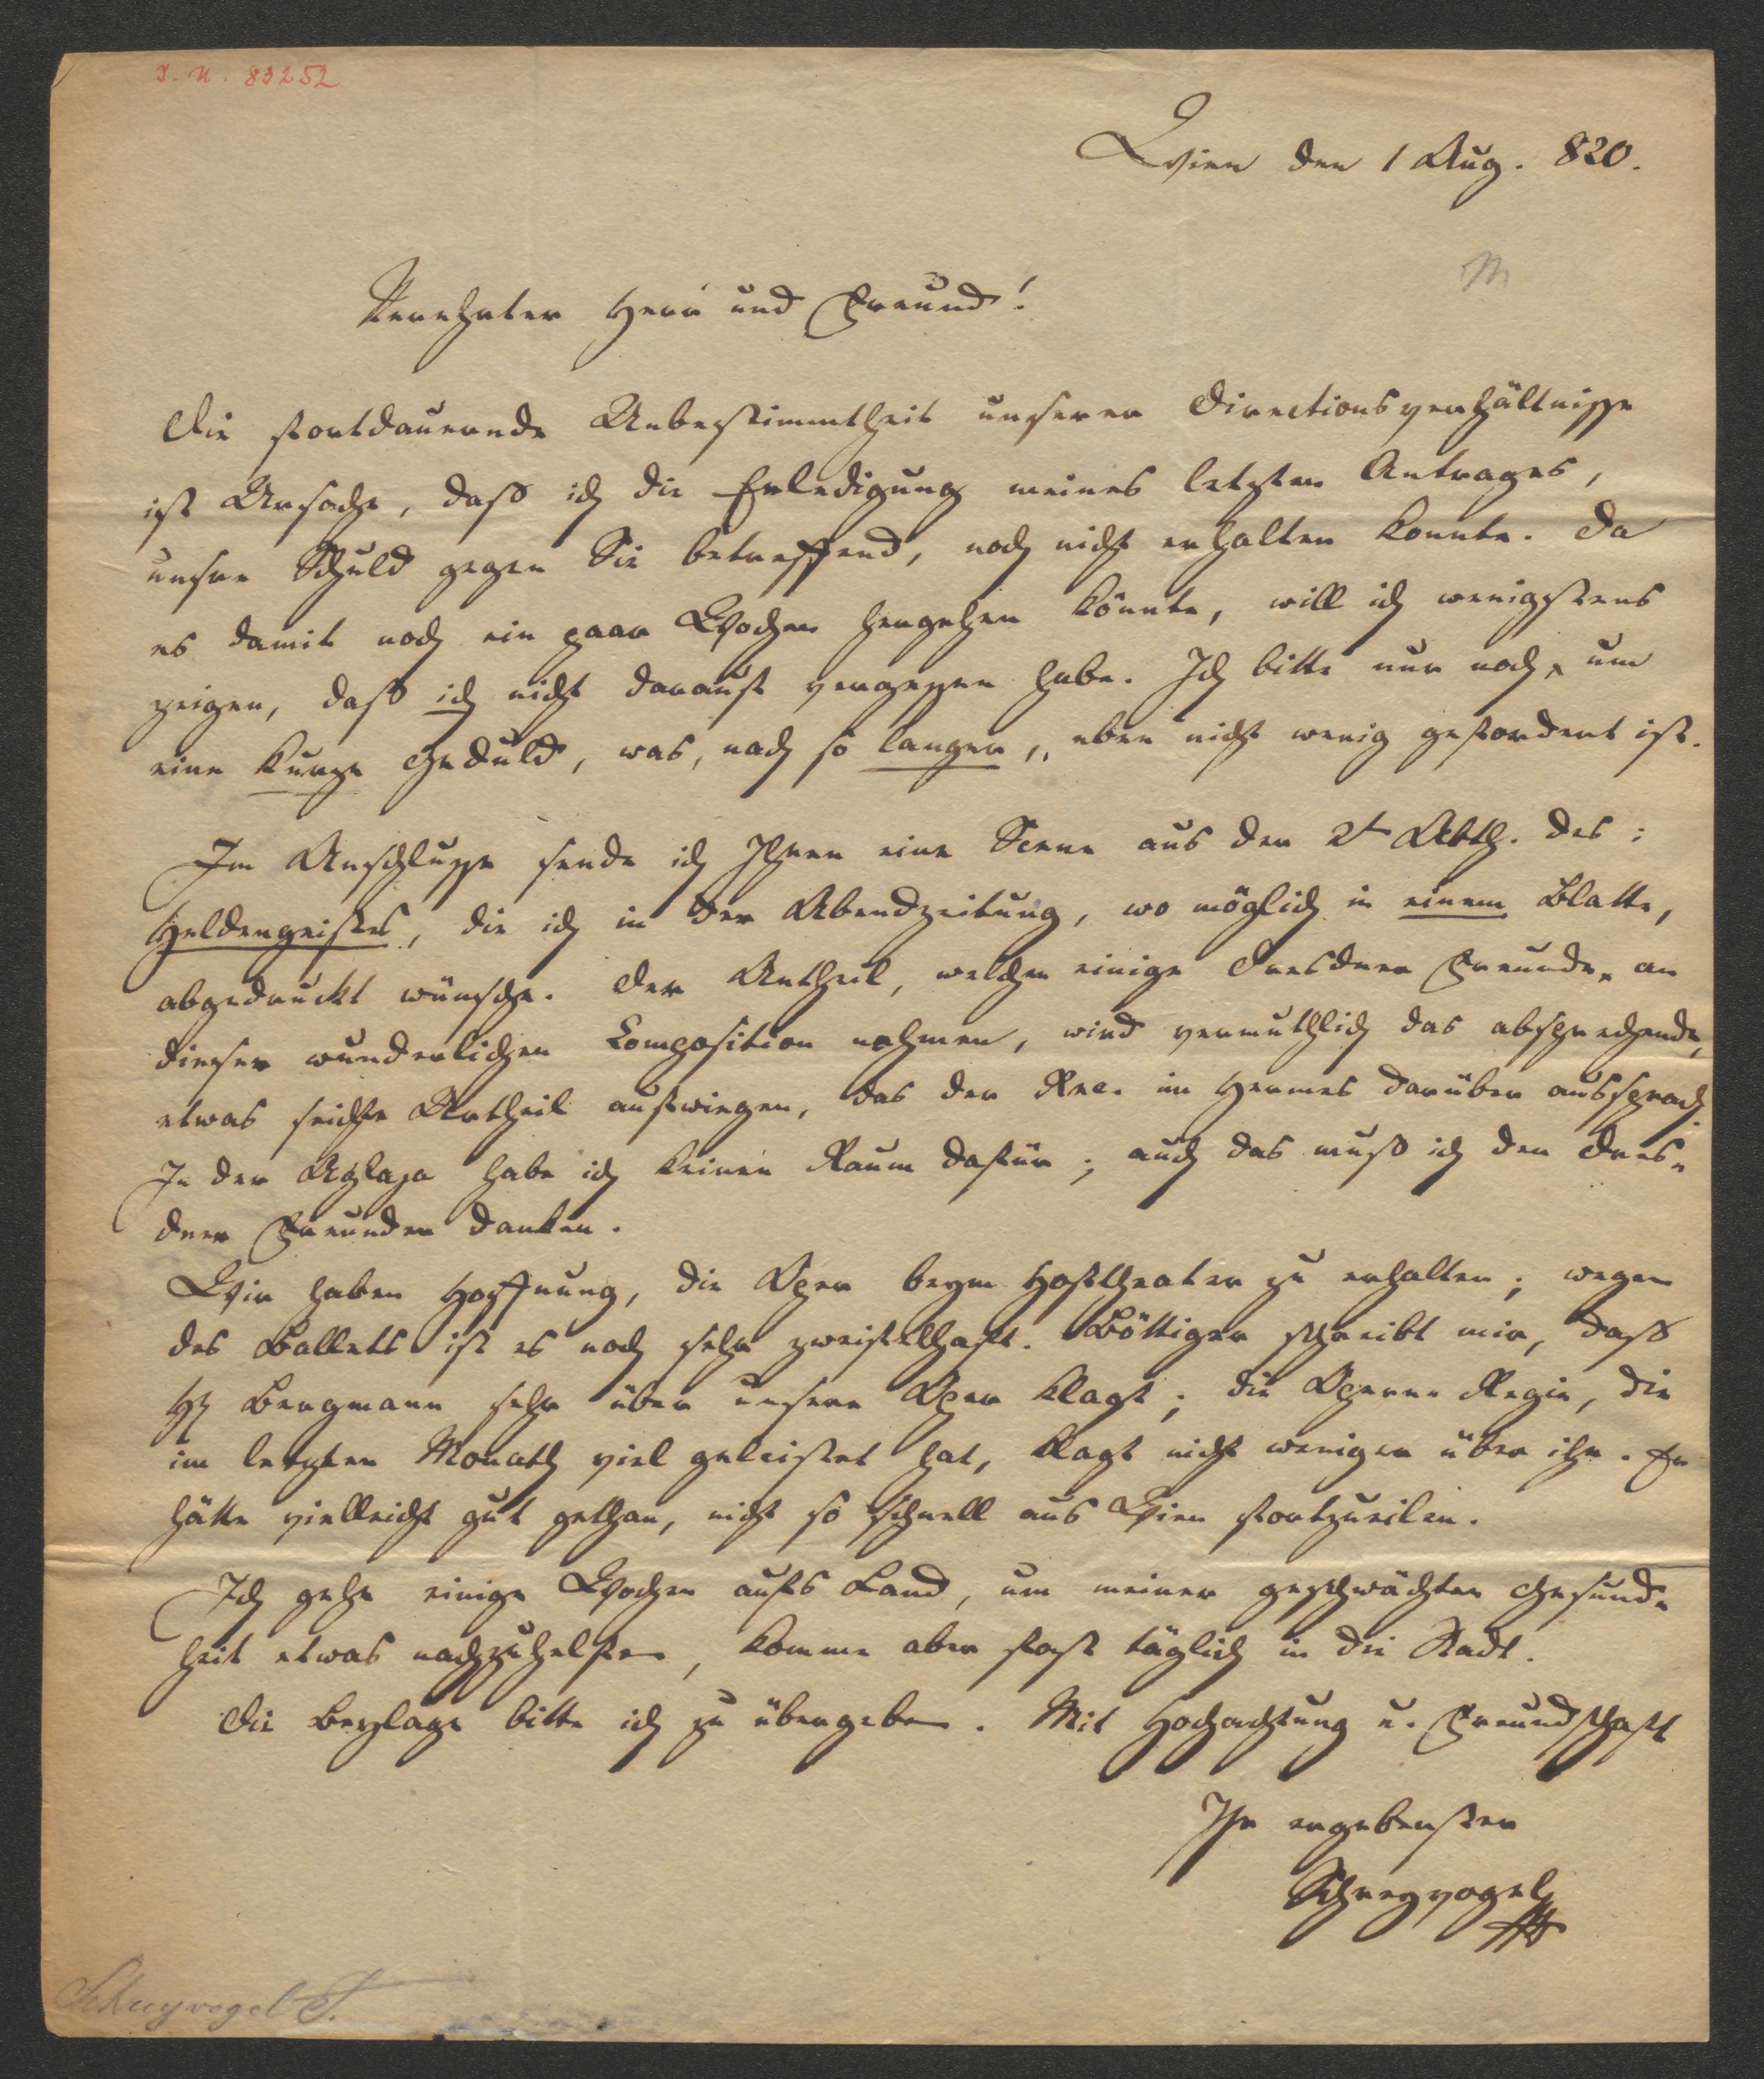 I.N. 83252
Wien den 1 Aug. 820.
M
Verehrter Herr und Freund!
Die fortdauernde Unbestimmtheit unserer Directionsverhältnisse
ist Ursache, daß ich die Erledigung meines letzten Antrages,
unsre Schuld gegen Sie betreffend, noch nicht erhalten konnte. Da
es damit noch ein paar Wochen hergehen könnte, will ich wenigstens
zeigen, daß ich nicht darauf vergessen habe. Ich bitte nur noch um
eine kurze Geduld, was, nach so langer, eben nicht wenig gefordert ist.
Im Anschlusse sende ich Ihnen eine Scene aus der 2t Abth. des:
Heldengeistes, die ich in der Abendzeitung, wo möglich in einem Blatte,
abgedruckt wünsche. Der Antheil, welchen einige Dresdner Freunde an
dieser wunderlichen Composition nahmen, wird vermuthlich das absprechende,
etwas seichte Urtheil aufwiegen, das der Rec. im Hermes darüber aussprach.
In der Aglaja habe ich keinen Raum dafür; auch das muß ich den Dres-
dner Freunden danken.
Wir haben Hoffnung, die Oper beym Hoftheater zu erhalten; wegen
des Ballets ist es noch sehr zweifelhaft. Böttiger schreibt mir, daß
H Bergmann sehr über unsere Oper klagt; die Opern-Regie, die
im letzten Monath viel geleistet hat, klagt nicht weniger über ihn. Er
hätte vielleicht gut gethan, nicht so schnell aus Wien fortzueilen.
Ich gehe einige Wochen aufs Land, um meiner geschwächten Gesund-
heit etwas nachzuhelfen, komme aber fast täglich in die Stadt.
Die Beylage bitte ich zu übergeben. Mit Hochachtung u. Freundschaft
Ihr ergebenster
Schreyvogel
Schreyvogel J.